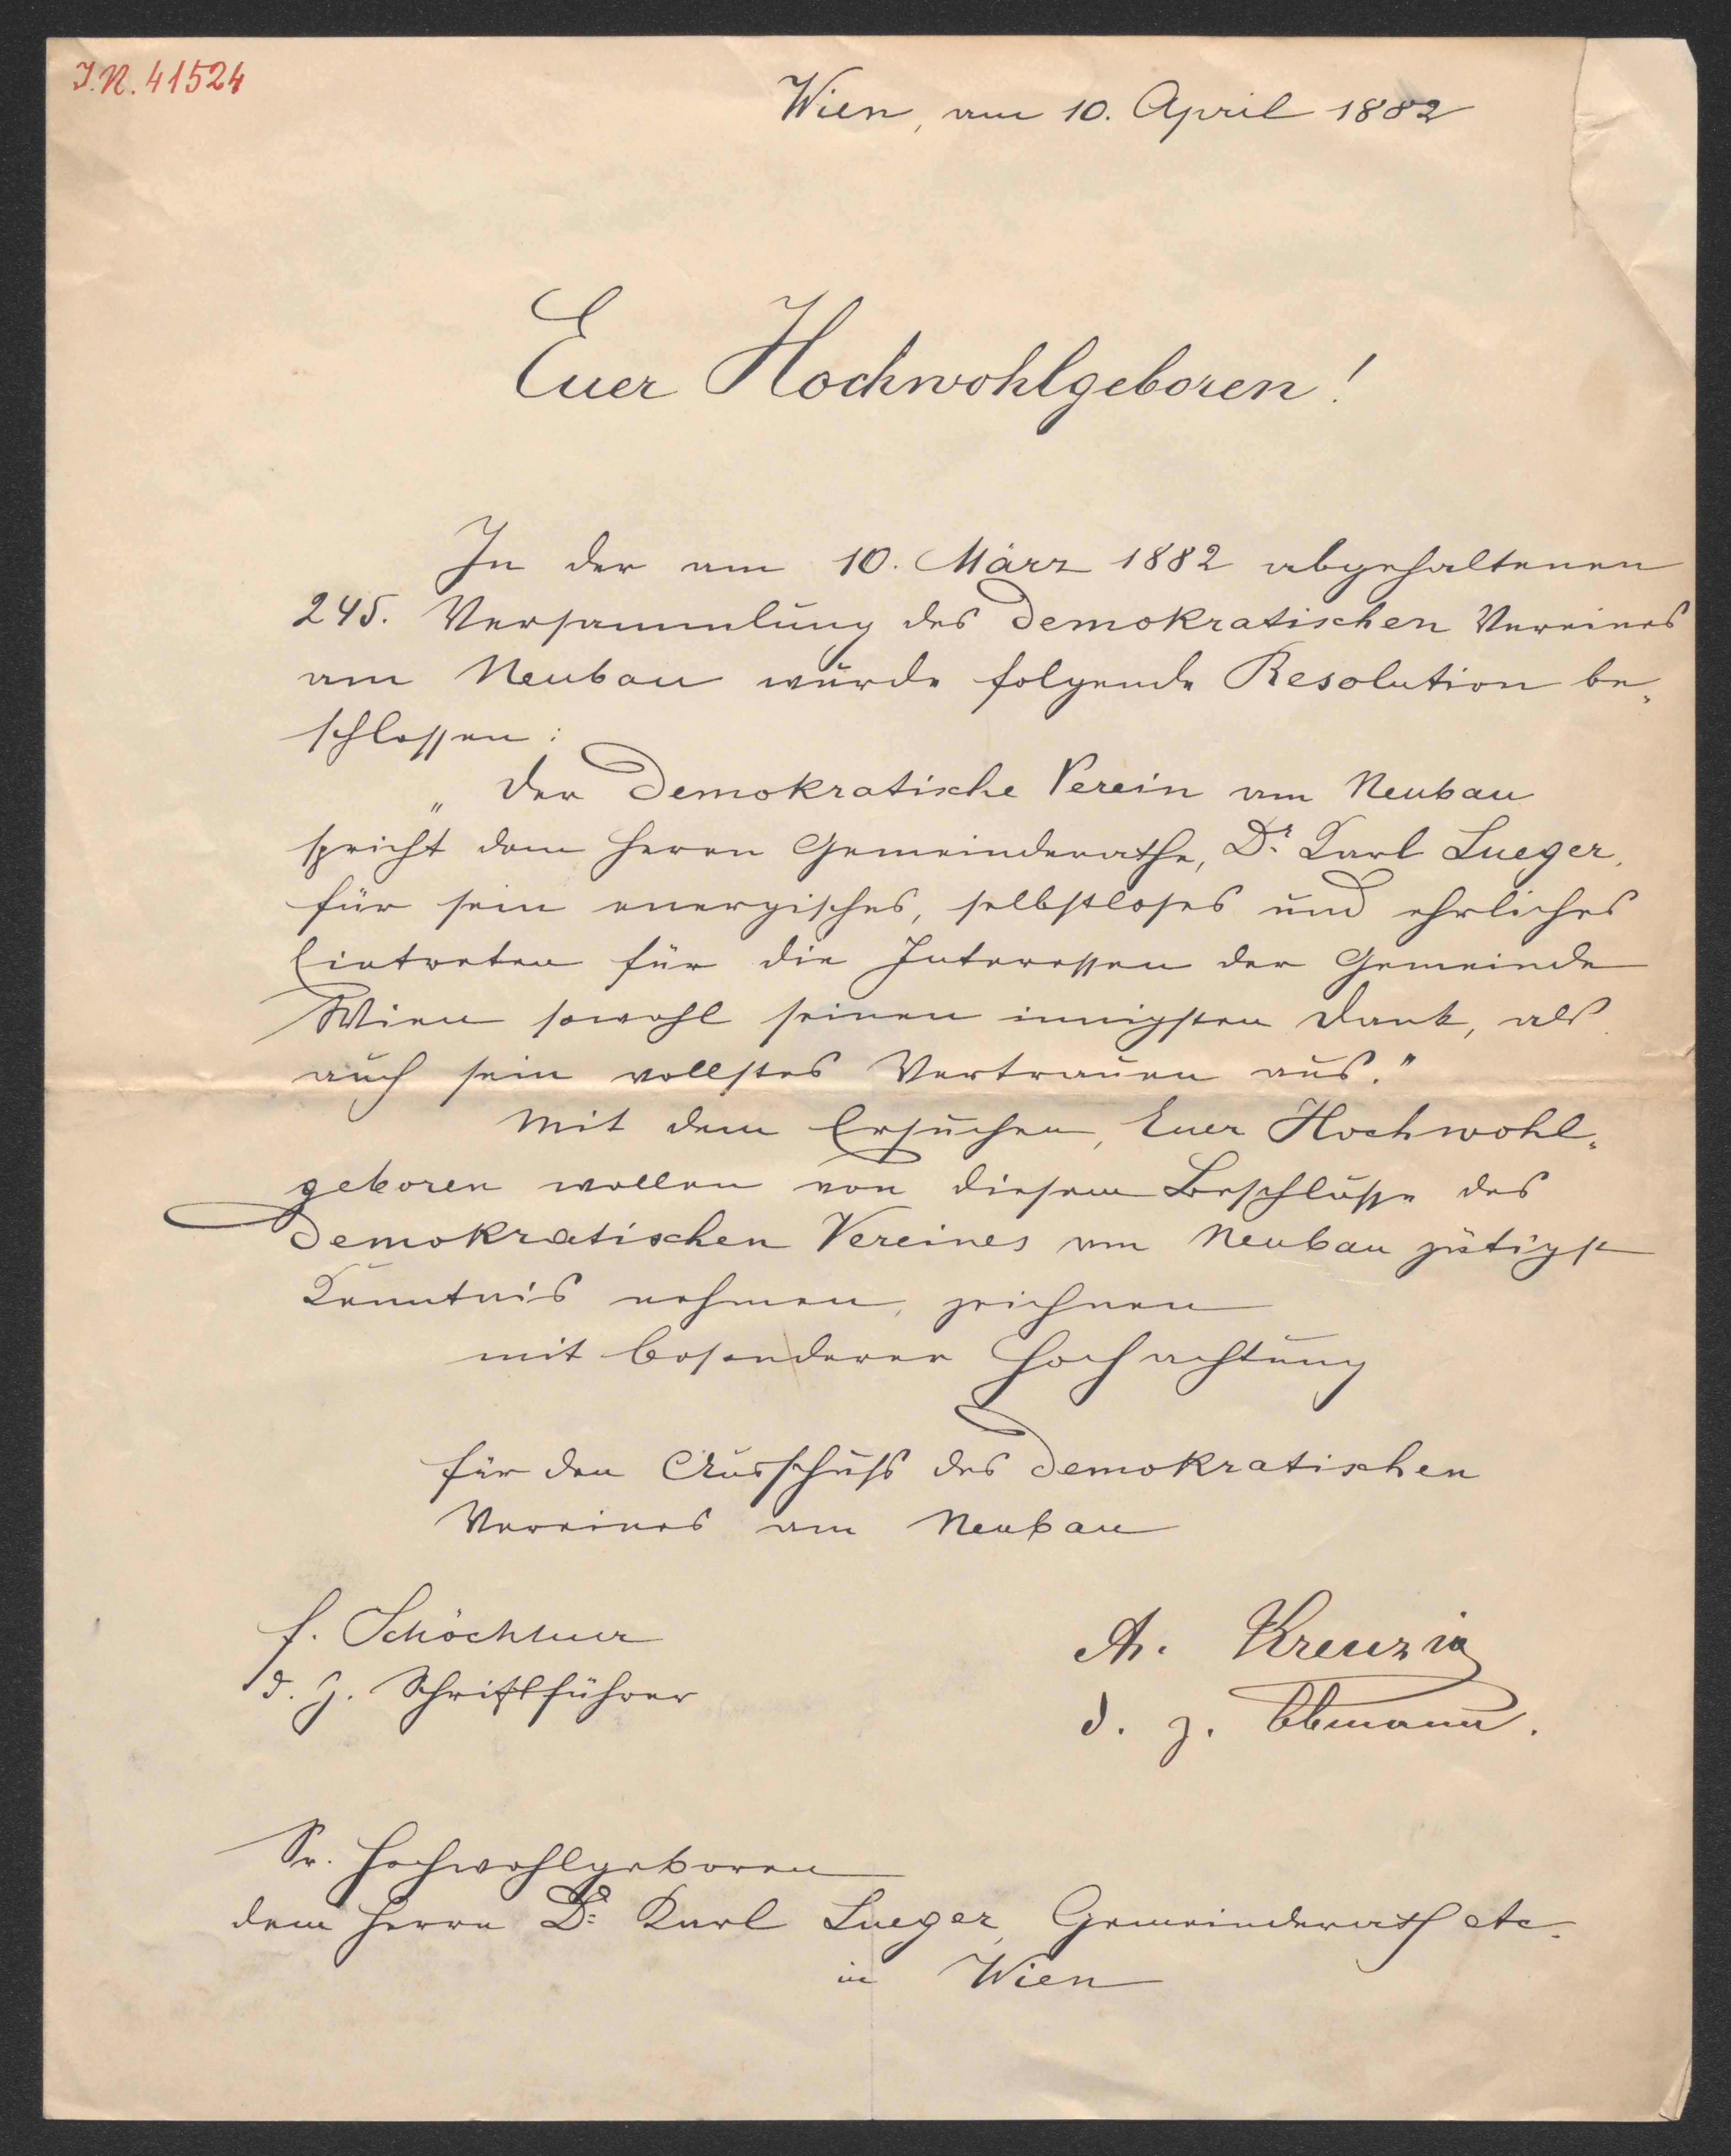 I.N. 41524
Wien, am 10. April 1882
Euer Hochwohlgeboren!
In der am 10. März 1882 abgehaltenen
245. Versammlung des Demokratischen Vereines
am Neubau wurde folgende Resolution be„
schlossen:
„Der Demokratische Verein am Neubau
spricht dem Herrn Gemeinderathe, Dr. Karl Lueger,
für sein energisches, selbstloses und ehrliches
Eintreten für die Interessen der Gemeinde
Wien sowohl seinen innigsten Dank, als
auch sein vollstes Vertrauen aus."
Mit dem Ersuchen, Euer Hochwohl„
geboren wollen von diesem Beschlusse des
Demokratischen Vereines am Neubau gütigst
Kenntnis nehmen, zeichnen
mit besonderer Hochachtung
für den Ausschuß des Demokratischen
Vereines am Neubau
F.
d. Z. Schriftführer
Kreuzig
d. z. Obmann.
Sr. Hochwohlgeboren
dem Herrn Dr. Karl Lueger, Gemeinderath etc.
in Wien